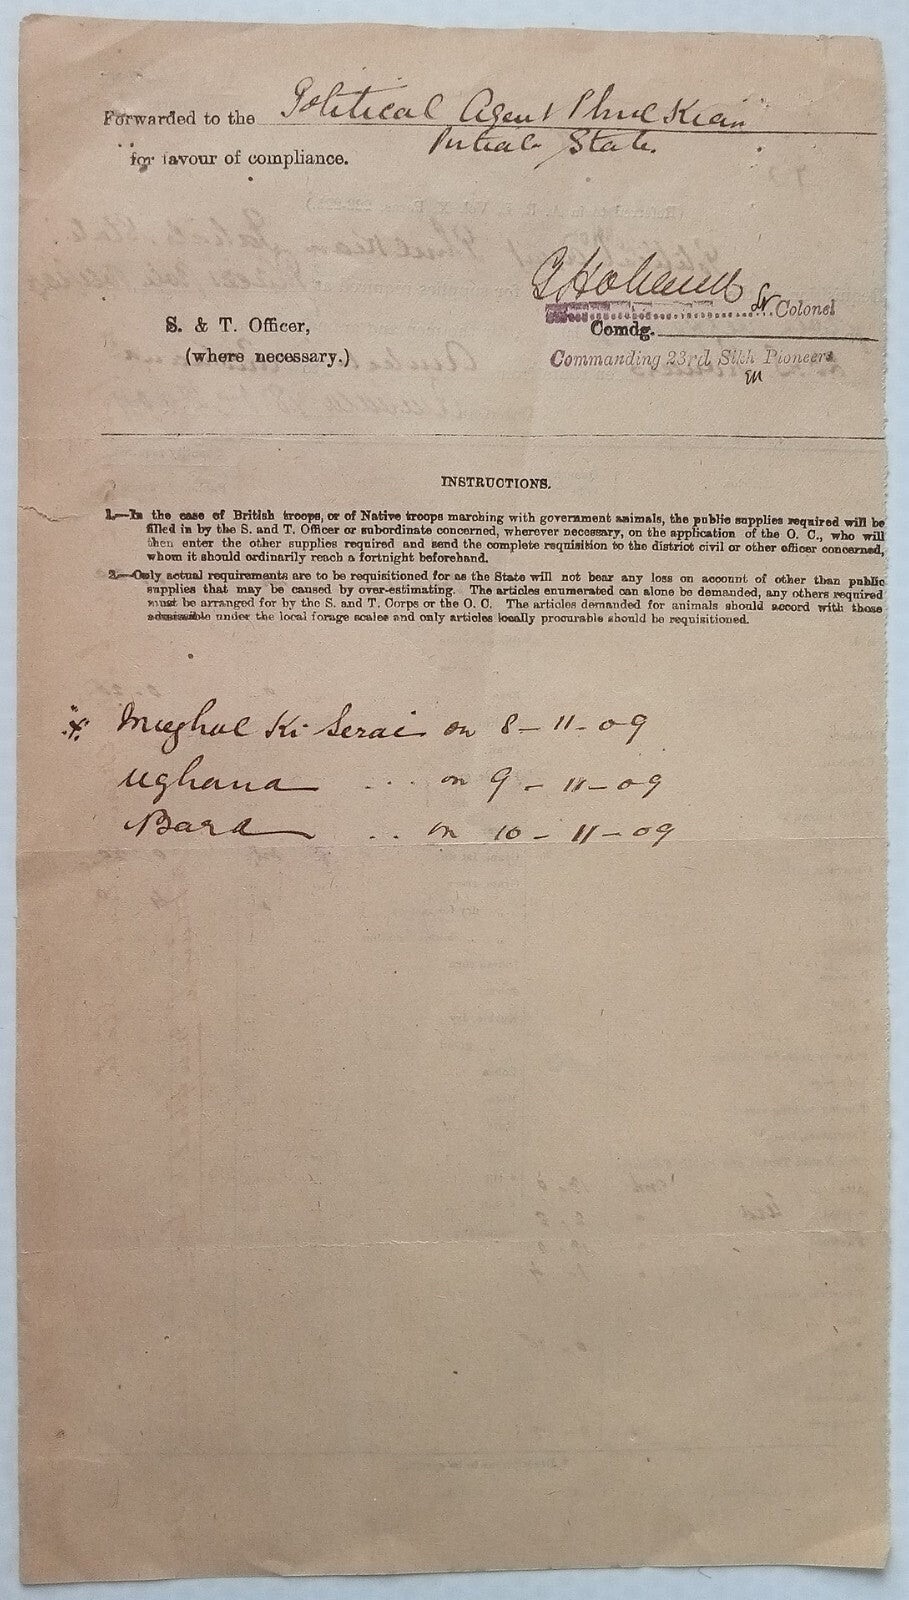 Forwarded to the Political Agent Phul Kian
for favour of compliance. State.
Lt Colonel
S. & T. Officer,
Comdg.
(where necessary.)
Commanding 23rd Sikh Pioneers
INSTRUCTIONS.
1.—In the case of British troops, or of Native troops marching with government animals, the public supplies required will be
filled in by the S. and T. Officer or subordinate concerned, wherever necessary, on the application of the O. C., who will
then enter the other supplies required and send the complete requisition to the district civil or other officer concerned,
whom it should ordinarily reach a fortnight beforehand.
2.—Only actual requirements are to be requisitioned for as the State will not bear any loss on account of other than public
supplies that may be caused by over-estimating. The articles enumerated can alone be demanded, any others required
must be arranged for by the S. and T. Corps or the O. C. The articles demanded for animals should accord with those
admissible under the local forage scales and only articles locally procurable should be requisitioned.
Mughul Ki Serai on 8-11-09
Ughana ... on 9-11-09
Bara .. on 10-11-09